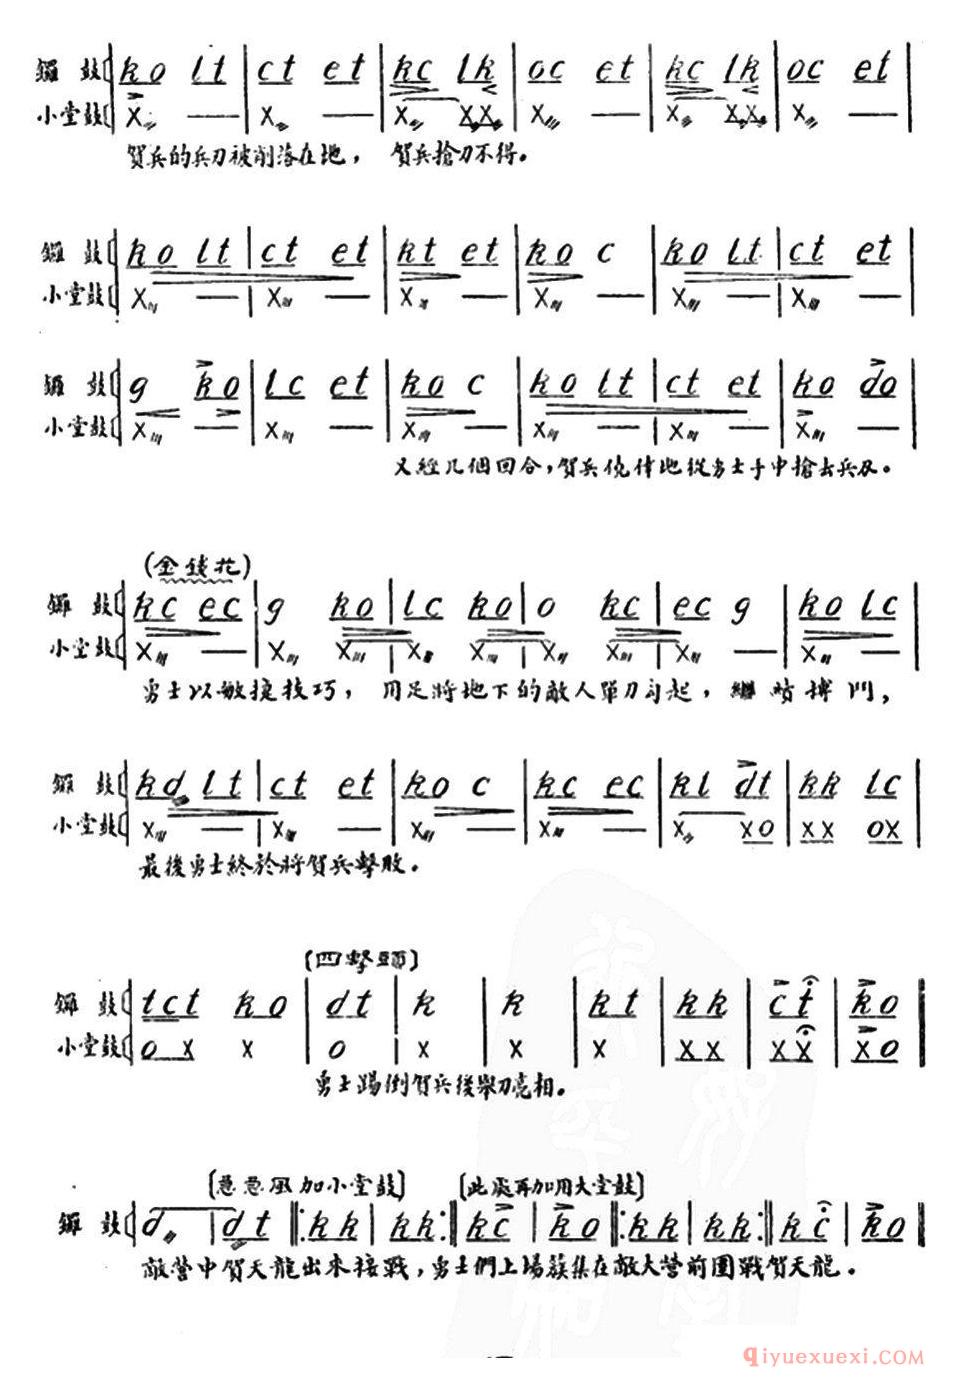 鑼鼓 ko lt | ct et | kc lk | oc et | kc lk | oc et |
小堂鼓 X — | X — | X XX | X — | X XX | X — |
賀兵的兵刃被削落在地， 賀兵搶刀不得。
鑼鼓 ko lt | ct et | kt et | ko c | ko lt | ct et |
小堂鼓 X — | X — | X — | X — | X — | X — |
鑼鼓 g ko | lc et | ko c | ko lt | ct et | ko do |
小堂鼓 X — | X — | X — | X — | X — | X — |
又經几個回合，賀兵僥倖地從勇士手中搶去兵刃。
(金錢花)
鑼鼓 kc ec | g ko | lc ko | o kc | ec g | ko lc |
小堂鼓 X — | X X | X X | X X | X — | X — |
勇士以敏捷技巧， 用足將地下的敵人單刀勾起， 繼續搏鬥，
鑼鼓 kd lt | ct et | ko c | kc ec | kl dt | kk lc |
小堂鼓 X — | X — | X — | X — | X XO | XX OX |
最後勇士終於將賀兵擊敗。
(四擊頭)
鑼鼓 tct ko | dt | k | k | kt | kk | ct | ko
小堂鼓 O X X | O | X | X | X | XX | XX | XO
勇士踢倒賀兵後舉刀亮相。
(急急風加小堂鼓) (此處再加用大堂鼓)
鑼鼓 d | dt ‖: kk | kk :‖ kc | ko ‖: kk | kk :‖ kc | ko ‖
敵營中賀天龍出來接戰，勇士們上場簇集在敵大營前圍戰賀天龍。
qiyuexuexi.com